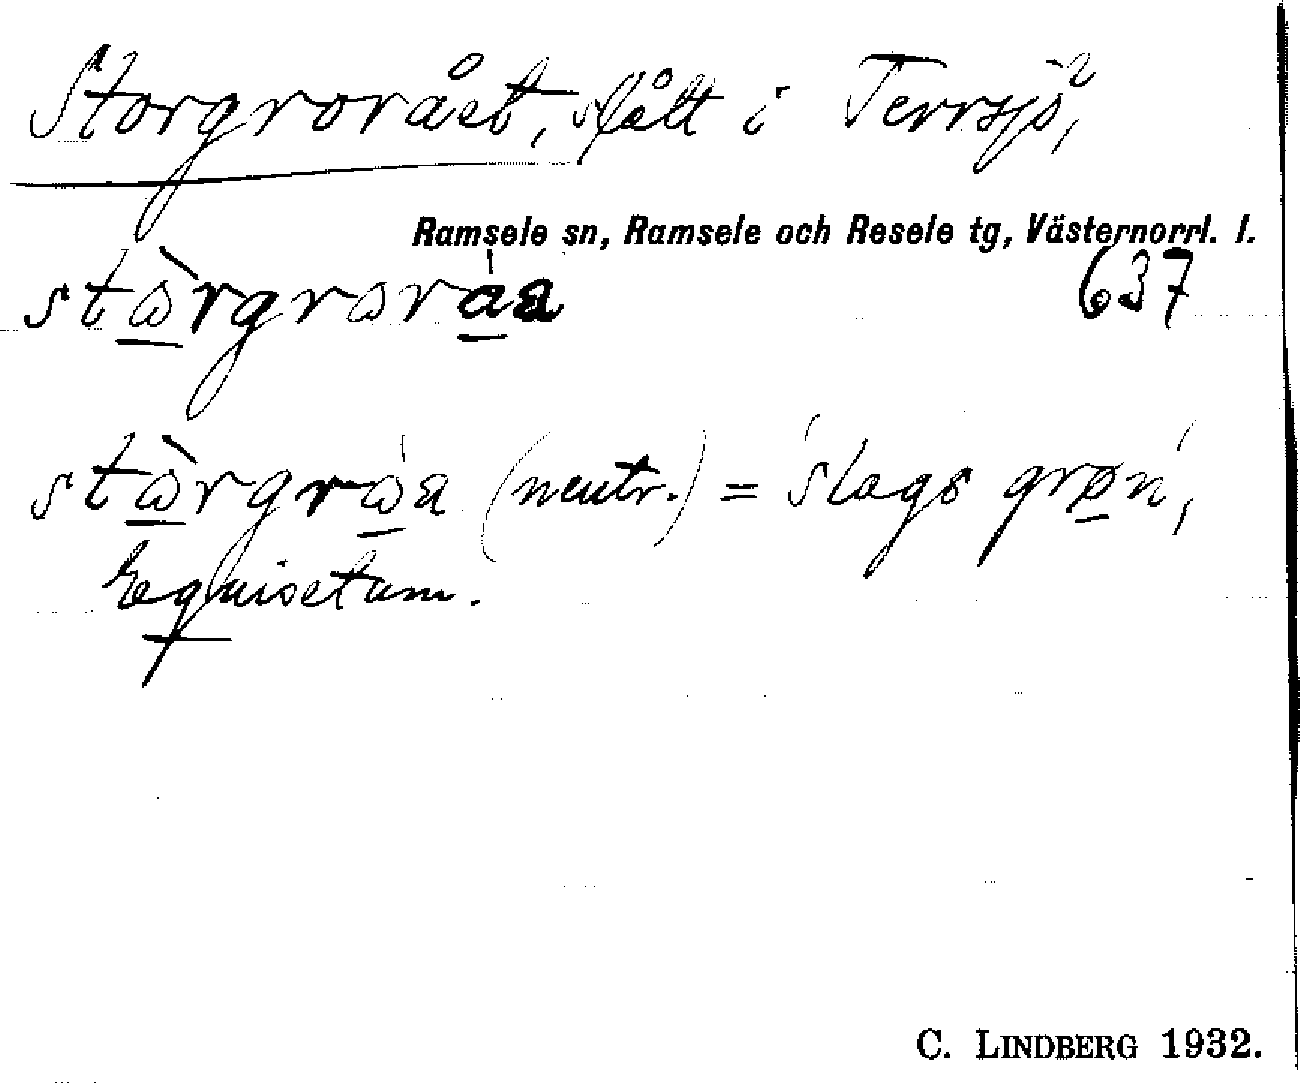 Storgroråst, slått i Terrsjö,
Ramsele sn, Ramsele och Resele tg, Västernorrl. l.
stɷ̀rgrɷråa 637
stɷ̀rgrɷ̀a (neutr.) = 'slags grøn',
Equisetum.
C. LINDBERG 1932.